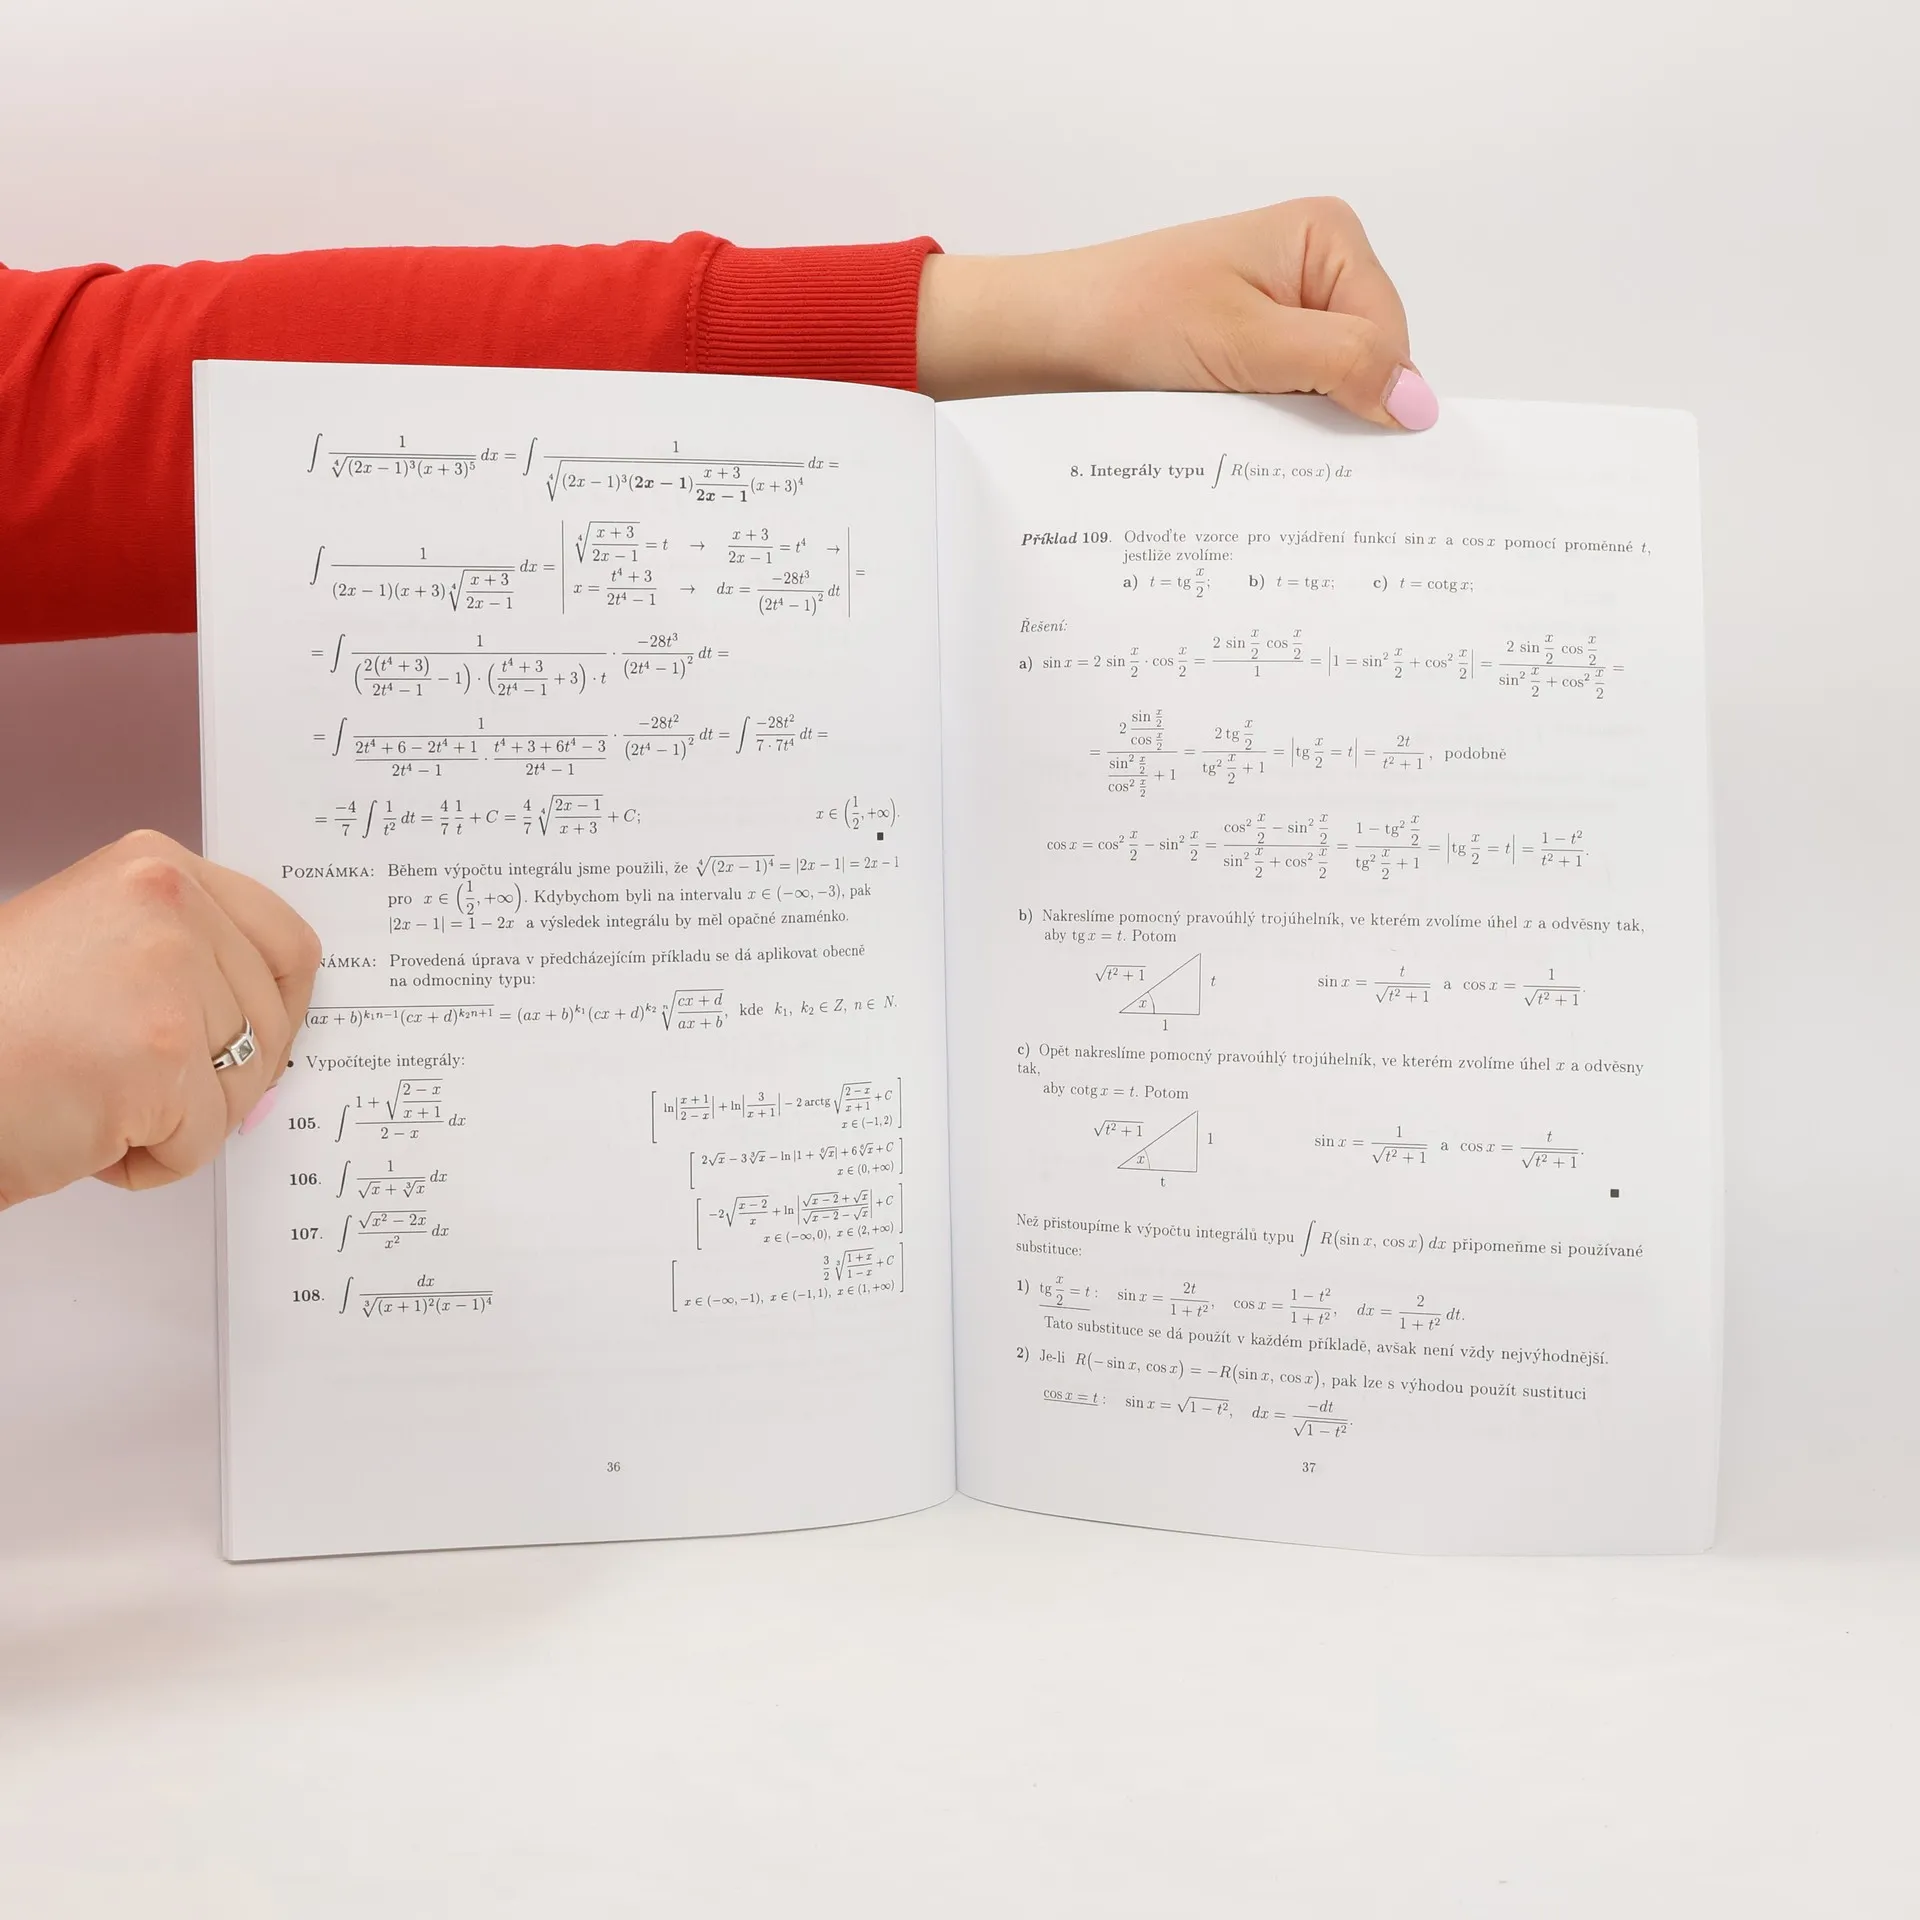 ∫ 1/⁴√((2x − 1)³(x + 3)⁵) dx = ∫ 1/⁴√((2x − 1)³(2x − 1) (x + 3)/(2x − 1) (x + 3)⁴) dx =
∫ 1/((2x − 1)(x + 3) ⁴√((x + 3)/(2x − 1))) dx = | ⁴√((x + 3)/(2x − 1)) = t → (x + 3)/(2x − 1) = t⁴ →
x = (t⁴ + 3)/(2t⁴ − 1) → dx = −28t³/(2t⁴ − 1)² dt | =
= ∫ 1/((2(t⁴ + 3)/(2t⁴ − 1) − 1) · ((t⁴ + 3)/(2t⁴ − 1) + 3) · t) · −28t³/(2t⁴ − 1)² dt =
= ∫ 1/((2t⁴ + 6 − 2t⁴ + 1)/(2t⁴ − 1) · (t⁴ + 3 + 6t⁴ − 3)/(2t⁴ − 1)) · −28t²/(2t⁴ − 1)² dt = ∫ −28t²/(7 · 7t⁴) dt =
= −4/7 ∫ 1/t² dt = 4/7 1/t + C = 4/7 ⁴√((2x − 1)/(x + 3)) + C; x ∈ (1/2, +∞).
■
POZNÁMKA: Během výpočtu integrálu jsme použili, že ⁴√((2x − 1)⁴) = |2x − 1| = 2x − 1
pro x ∈ (1/2, +∞). Kdybychom byli na intervalu x ∈ (−∞, −3), pak
|2x − 1| = 1 − 2x a výsledek integrálu by měl opačné znaménko.
NÁMKA: Provedená úprava v předcházejícím příkladu se dá aplikovat obecně
na odmocniny typu:
(ax + b)^(k₁n−1)(cx + d)^(k₂n+1) = (ax + b)^k₁(cx + d)^k₂ ⁿ√((cx + d)/(ax + b)), kde k₁, k₂ ∈ Z, n ∈ N.
• Vypočítejte integrály:
105. ∫ (1 + √((2 − x)/(x + 1)))/(2 − x) dx [ ln|(x + 1)/(2 − x)| + ln|3/(x + 1)| − 2 arctg √((2 − x)/(x + 1)) + C
x ∈ (−1, 2) ]
106. ∫ 1/(√x + ³√x) dx [ 2√x − 3 ³√x − ln |1 + ⁶√x| + 6 ⁶√x + C
x ∈ (0, +∞) ]
107. ∫ √(x² − 2x)/x² dx [ −2√((x − 2)/x) + ln|(√(x − 2) + √x)/(√(x − 2) − √x)| + C
x ∈ (−∞, 0), x ∈ (2, +∞) ]
108. ∫ dx/³√((x + 1)²(x − 1)⁴) [ 3/2 ³√((1 + x)/(1 − x)) + C
x ∈ (−∞, −1), x ∈ (−1, 1), x ∈ (1, +∞) ]
36
8. Integrály typu ∫ R(sin x, cos x) dx
Příklad 109. Odvoďte vzorce pro vyjádření funkcí sin x a cos x pomocí proměnné t,
jestliže zvolíme:
a) t = tg x/2; b) t = tg x; c) t = cotg x;
Řešení:
a) sin x = 2 sin x/2 · cos x/2 = (2 sin x/2 cos x/2)/1 = |1 = sin² x/2 + cos² x/2| = (2 sin x/2 cos x/2)/(sin² x/2 + cos² x/2) =
= (2 (sin x/2)/(cos x/2))/((sin² x/2)/(cos² x/2) + 1) = (2 tg x/2)/(tg² x/2 + 1) = |tg x/2 = t| = 2t/(t² + 1), podobně
cos x = cos² x/2 − sin² x/2 = (cos² x/2 − sin² x/2)/(sin² x/2 + cos² x/2) = (1 − tg² x/2)/(tg² x/2 + 1) = |tg x/2 = t| = (1 − t²)/(t² + 1).
b) Nakreslíme pomocný pravoúhlý trojúhelník, ve kterém zvolíme úhel x a odvěsny tak,
aby tg x = t. Potom
√(t² + 1) t x 1 sin x = t/√(t² + 1) a cos x = 1/√(t² + 1).
c) Opět nakreslíme pomocný pravoúhlý trojúhelník, ve kterém zvolíme úhel x a odvěsny
tak,
aby cotg x = t. Potom
√(t² + 1) 1 x t sin x = 1/√(t² + 1) a cos x = t/√(t² + 1).
■
Než přistoupíme k výpočtu integrálů typu ∫ R(sin x, cos x) dx připomeňme si používané
substituce:
1) tg x/2 = t : sin x = 2t/(1 + t²), cos x = (1 − t²)/(1 + t²), dx = 2/(1 + t²) dt.
Tato substituce se dá použít v každém příkladě, avšak není vždy nejvýhodnější.
2) Je-li R(− sin x, cos x) = −R(sin x, cos x), pak lze s výhodou použít sustituci
cos x = t : sin x = √(1 − t²), dx = −dt/√(1 − t²).
37